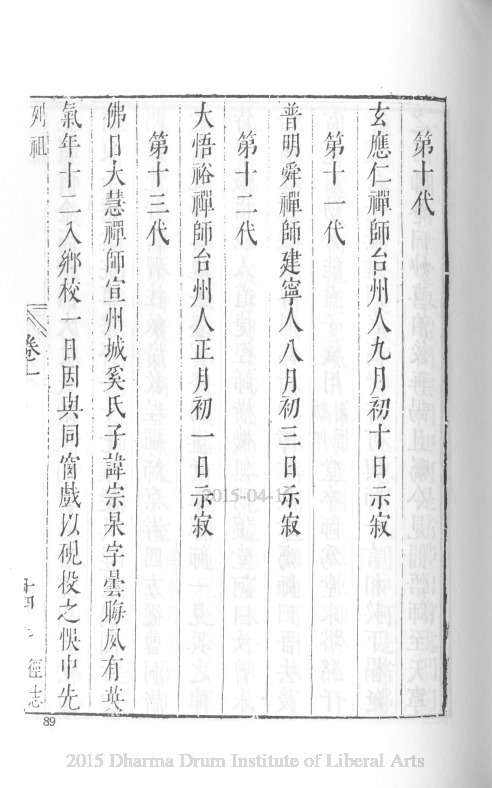 第十代
玄應仁禪師台州人九月初十日示寂
第十一代
普明舜禪師建寧人八月初三日示寂
第十二代
大悟裕禪師台州人正月初一日示寂
第十三代
佛日大慧禪師宣州城奚氏子諱宗杲字曇晦夙有英
氣年十二入鄉校一日因與同窗戲以硯投之悞中先
列祖
卷一
十四
徑志
89
2015-04-15
2015 Dharma Drum Institute of Liberal Arts